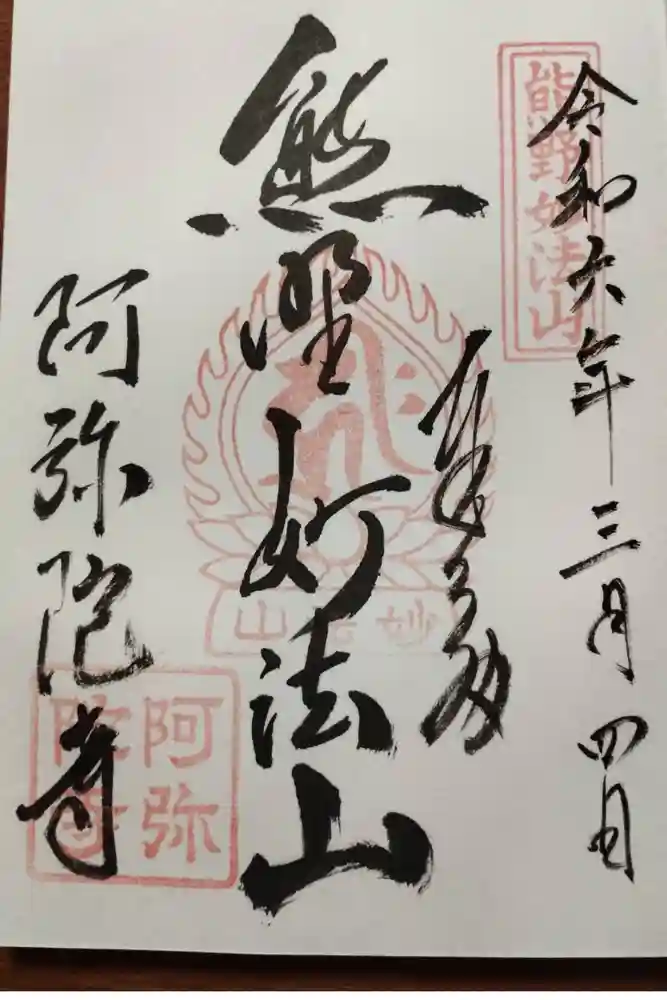 令和六年三月四日
熊野妙法山
熊野妙法山
妙法山
阿弥陀寺
阿弥
陀寺